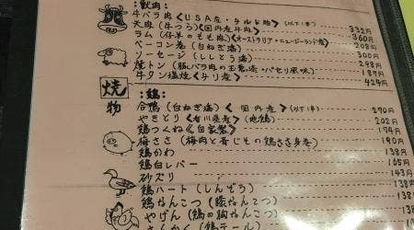 :獣肉:
牛バラ肉《USA産・タルト味》(以下1串)
天肉(牛つう)《国内産牛肉》 332円
ラム(仔羊のもも肉)《オーストラリア・ニュージーランド産》 360円
ベーコン巻(白ねぎ塩) 208円
ソーセージ(ししとう塩) 300円
焼トン(豚バラ肉の玉葱巻・パセリ風味) 248円
牛タン塩焼《チリ産》 187円
424円
焼物
:鶏:
合鴨(白ねぎ塩)《国内産》(以下1串) 270円
やきとり《香川県産》(地鶏) 202円
鶏つくね《自家製》 174円
梅ささ(梅肉と青じその鶏ささ身巻) 190円
鶏かわ 138円
鶏白レバー 165円
砂ズリ 143円
鶏ハート(しんぞう) 138円
鶏なんこつ(膝なんこつ) 138円
やげん(鶏の胸なんこつ) 138円
さんかく(鶏テール)